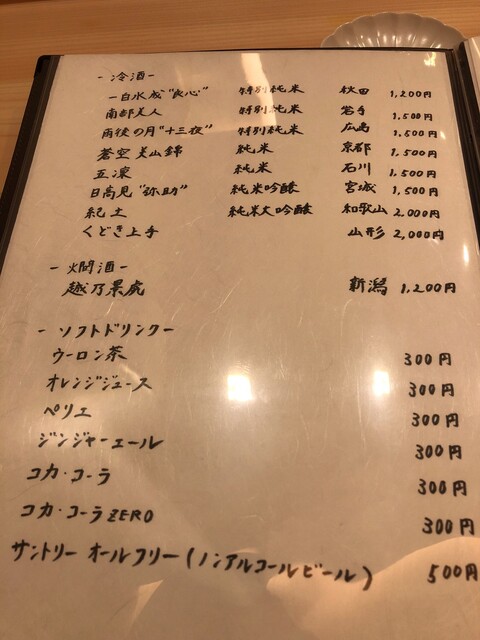 - 冷酒 -
一白水成"良心" 特別純米 秋田 1,200円
南部美人 特別純米 岩手 1,500円
雨後の月"十三夜" 特別純米 広島 1,500円
蒼空 美山錦 純米 京都 1,500円
五凜 純米 石川 1,500円
日高見"弥助" 純米吟醸 宮城 1,500円
紀土 純米大吟醸 和歌山 2,000円
くどき上手 山形 2,000円
- 燗酒 -
越乃景虎 新潟 1,200円
- ソフトドリンク -
ウーロン茶 300円
オレンジジュース 300円
ペリエ 300円
ジンジャーエール 300円
コカ・コーラ 300円
コカ・コーラZERO 300円
サントリー オールフリー(ノンアルコールビール) 500円